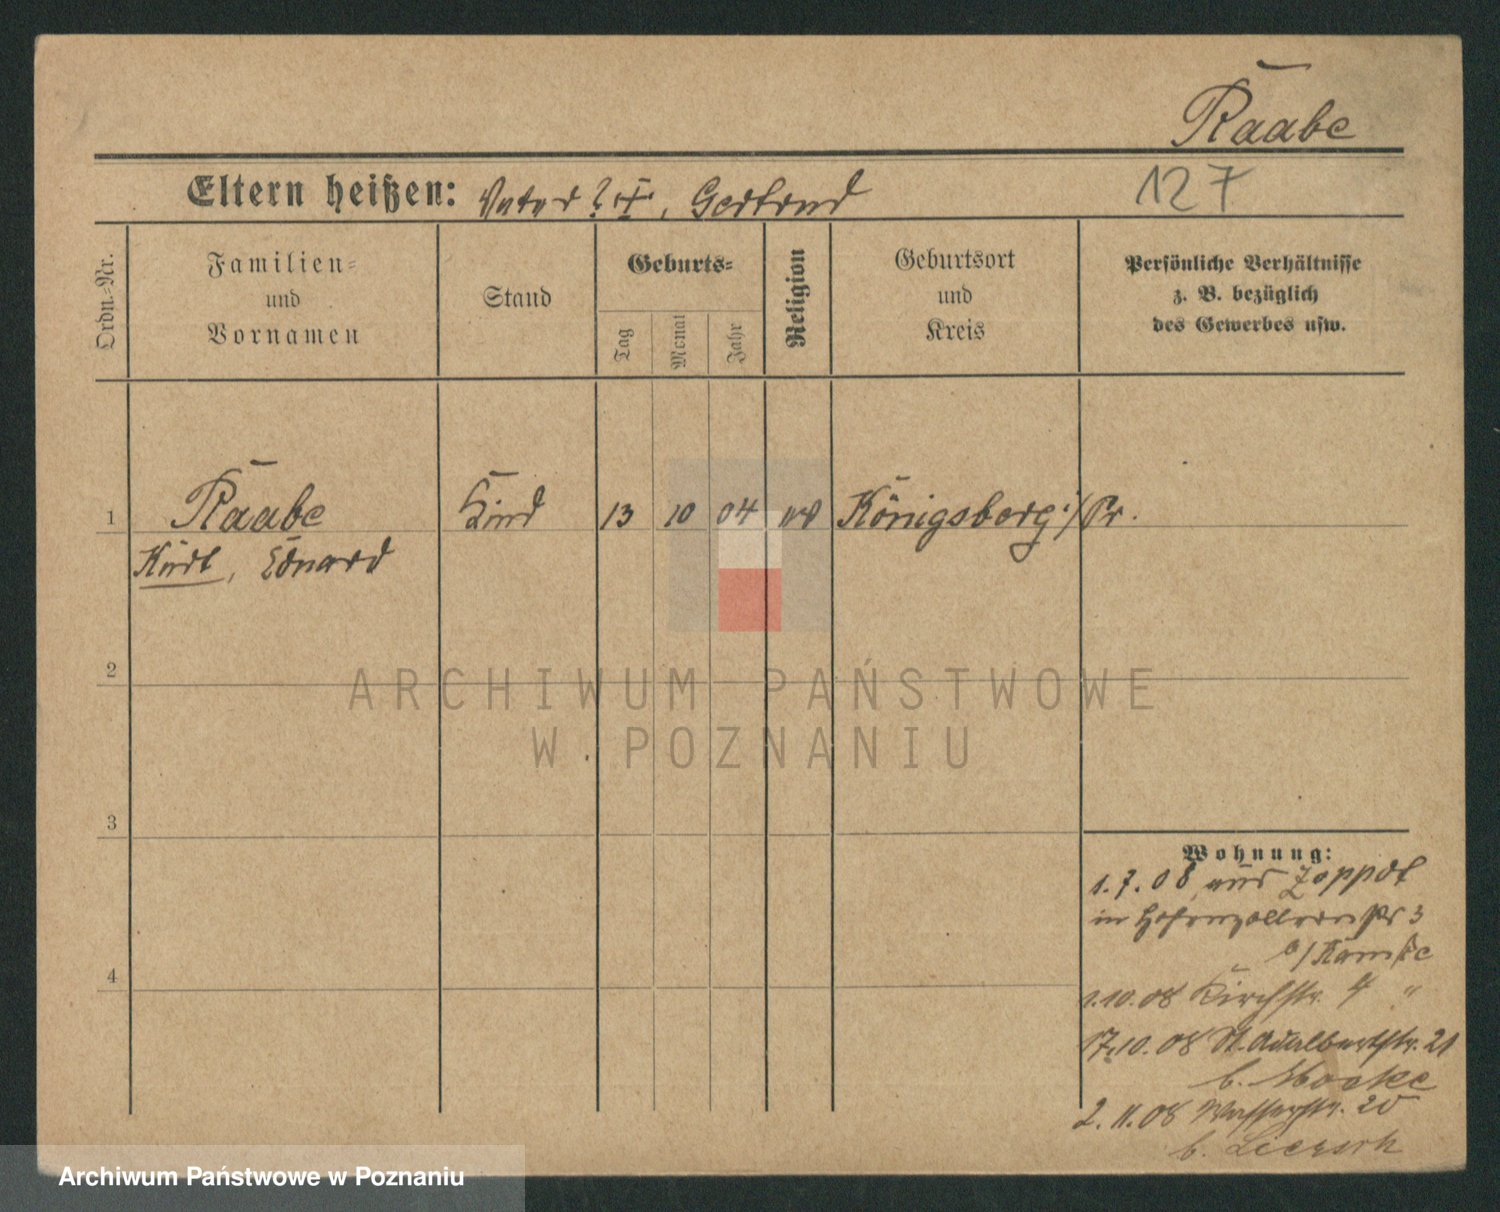 Raabe
Eltern heißen: Vater ? , Gertrud
127
Ordn.-Nr.
Familien-
und
Vornamen
Stand
Geburts-
Tag
Monat
Jahr
Religion
Geburtsort
und
Kreis
Persönliche Verhältnisse
z. B. bezüglich
des Gewerbes usw.
1 Raabe Kind 13 10 04 Königsberg i/Pr.
Kurt, Eduard
2
3
4
ARCHIWUM PAŃSTWOWE
W POZNANIU
Wohnung:
1.7.08 aus Zoppot
in Hohenzollernstr 3
b/
1.10.08 Kirchstr. 4 "
17.10.08 St. Adalbertstr. 21
b.
2.11.08 Wasserstr. 20
b.
Archiwum Państwowe w Poznaniu